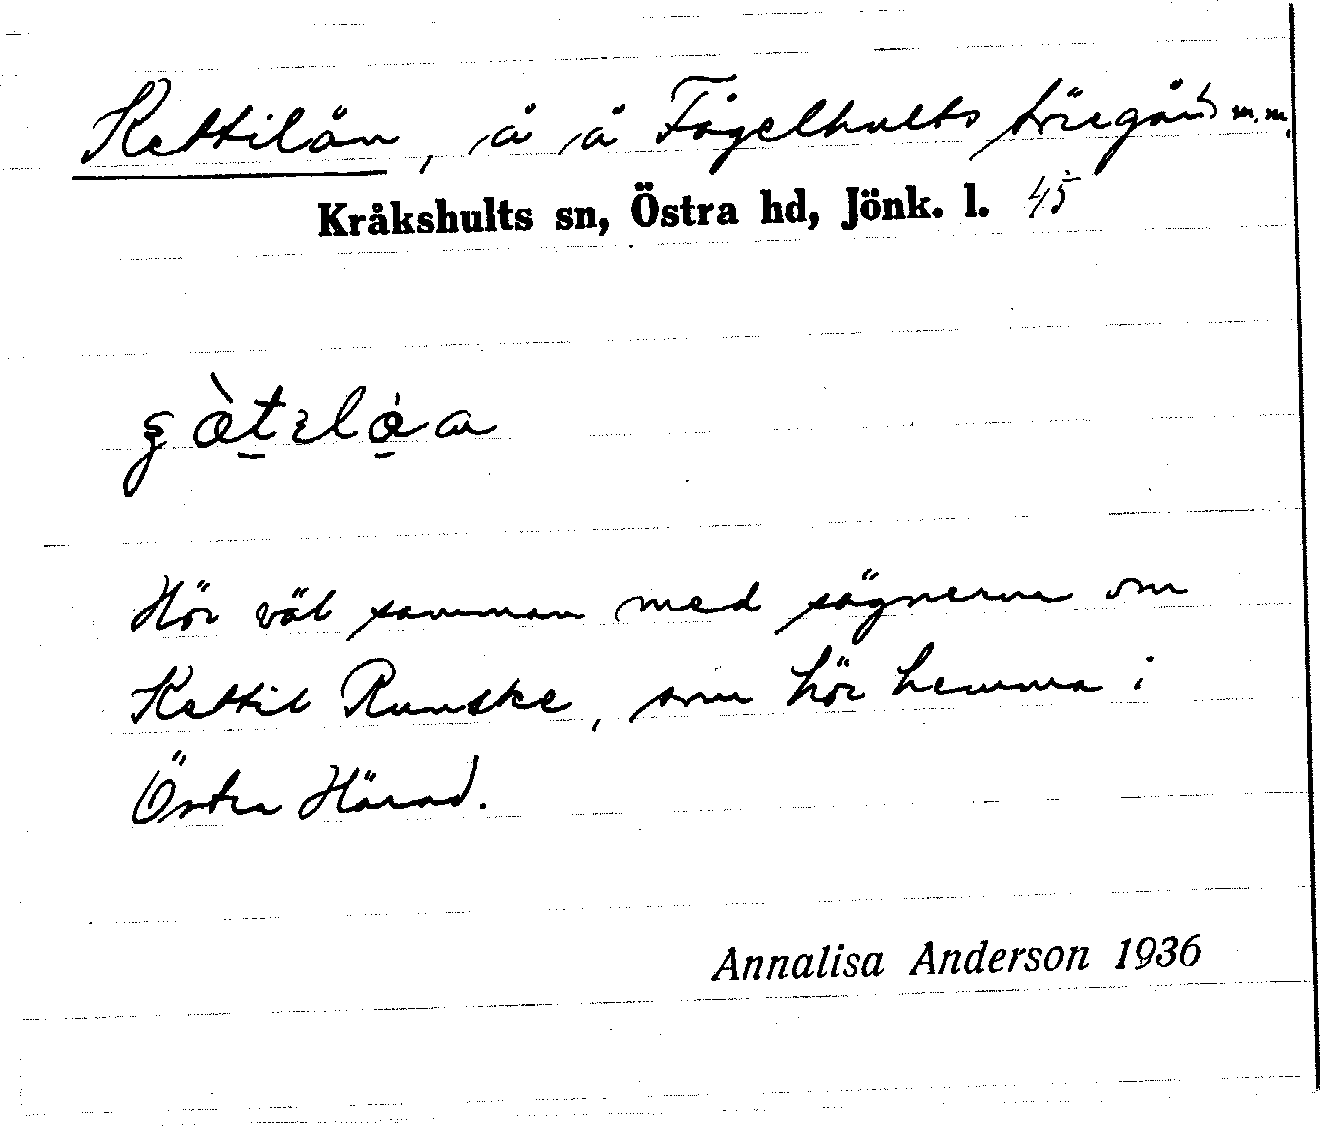 Kettilån, å å Fågelhults frregård m.m.
Kråkshults sn, Östra hd, Jönk. l. 45
Hör väl samman med sägnerna om
Kettil Runske, som hör hemma i
Östra Härad.
Annalisa Anderson 1936